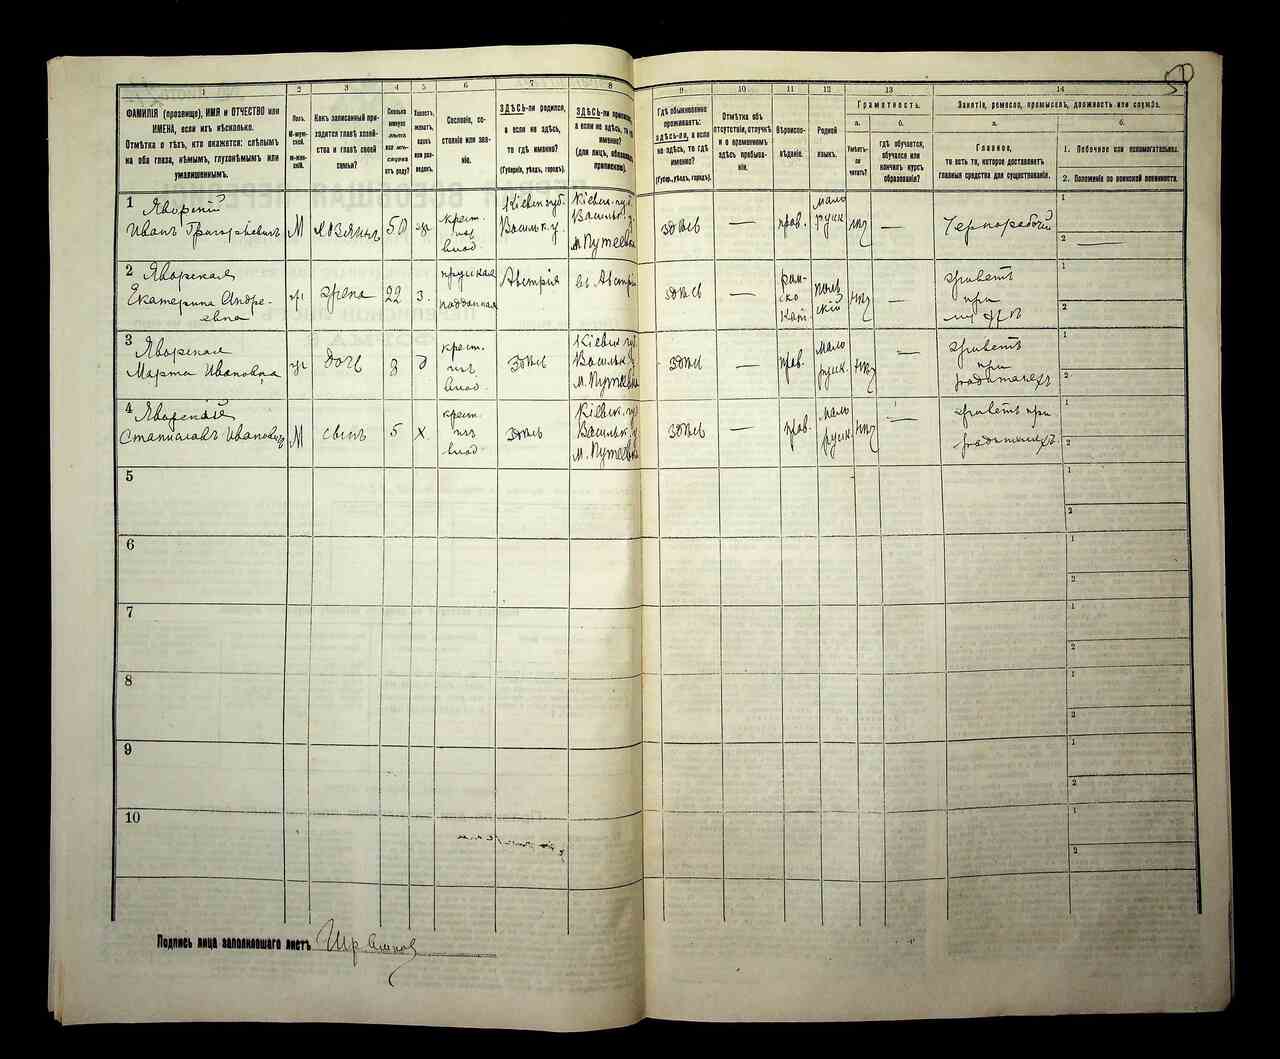 1
ФАМИЛІЯ (прозвище), ИМЯ и ОТЧЕСТВО или
ИМЕНА, если ихъ нѣсколько.
Отмѣтка о тѣхъ, кто окажется: слѣпымъ
на оба глаза, нѣмымъ, глухонѣмымъ или
умалишеннымъ.
2
Полъ.
М-муж-
ской.
ж-жен-
скій.
3
Какъ записанный при-
ходится главѣ хозяй-
ства и главѣ своей
семьи?
4
Сколько
минуло
лѣтъ
отъ роду?
5
Холостъ,
женатъ,
вдовъ
или раз-
веденъ.
6
Сословіе, со-
стояніе или зва-
ніе.
7
ЗДѢСЬ-ли родился,
а если не здѣсь,
то гдѣ именно?
(Губернія, уѣздъ, городъ).
8
ЗДѢСЬ-ли
а если не здѣсь, то гдѣ
именно?
(для лицъ,
9
Гдѣ обыкновенно
проживаетъ:
здѣсь-ли, а если
не здѣсь, то гдѣ
именно?
(Губер.,уѣздъ, городъ).
10
Отмѣтка объ
отсутствіи, отлучкѣ
и о временномъ
здѣсь пребыва-
ніи.
11
Вѣроиспо-
вѣданіе.
12
Родной
языкъ.
13
Грамотность.
а.
Умѣетъ-
ли
читать?
б.
гдѣ обучается,
обучался или
кончилъ курсъ
образованія?
14
Занятіе, ремесло, промыселъ, должность или служба.
а.
Главное,
то есть то, которое доставляетъ
главныя средства для существованія.
б.
1. Побочное или вспомогательное.
2. Положеніе по воинской повинности.
1
Яворскій
Иванъ Григорьевичъ
М
хозяинъ
50
ж
крест.
изъ
влад.
Кіевск. губ.
Васильк. у.
Кіевск. губ.
Васильк. у.
м. Путеевка
здѣсь
—
прав.
мало
русск.
нѣтъ
—
Чернорабочій
1
2 —
2
Яворская
Екатерина Андре-
евна
ж
жена
22
з.
прусская
подданная
Австрія
въ Австріи
здѣсь
—
рим-
ско
кат.
поль
скій
нѣтъ
—
живетъ
при
мужѣ
1
2
3
Яворская
Марта Ивановна
ж
дочь
8
д
крест.
изъ
влад.
здѣсь
Кіевск. губ.
Васильк. у.
м. Путеевка
здѣсь
—
прав.
мало
русск.
нѣтъ
—
живетъ
при
родителяхъ
1
2
4
Яворскій
Станиславъ Ивановичъ
М
сынъ
5
х
крест.
изъ
влад.
здѣсь
Кіевск. губ.
Васильк. у.
м. Путеевка
здѣсь
—
прав.
мало
русск.
нѣтъ
—
живетъ при
родителяхъ
1
2
5
1
2
6
1
2
7
1
2
8
1
2
9
1
2
10
1
2
Подпись лица заполнявшаго листъ